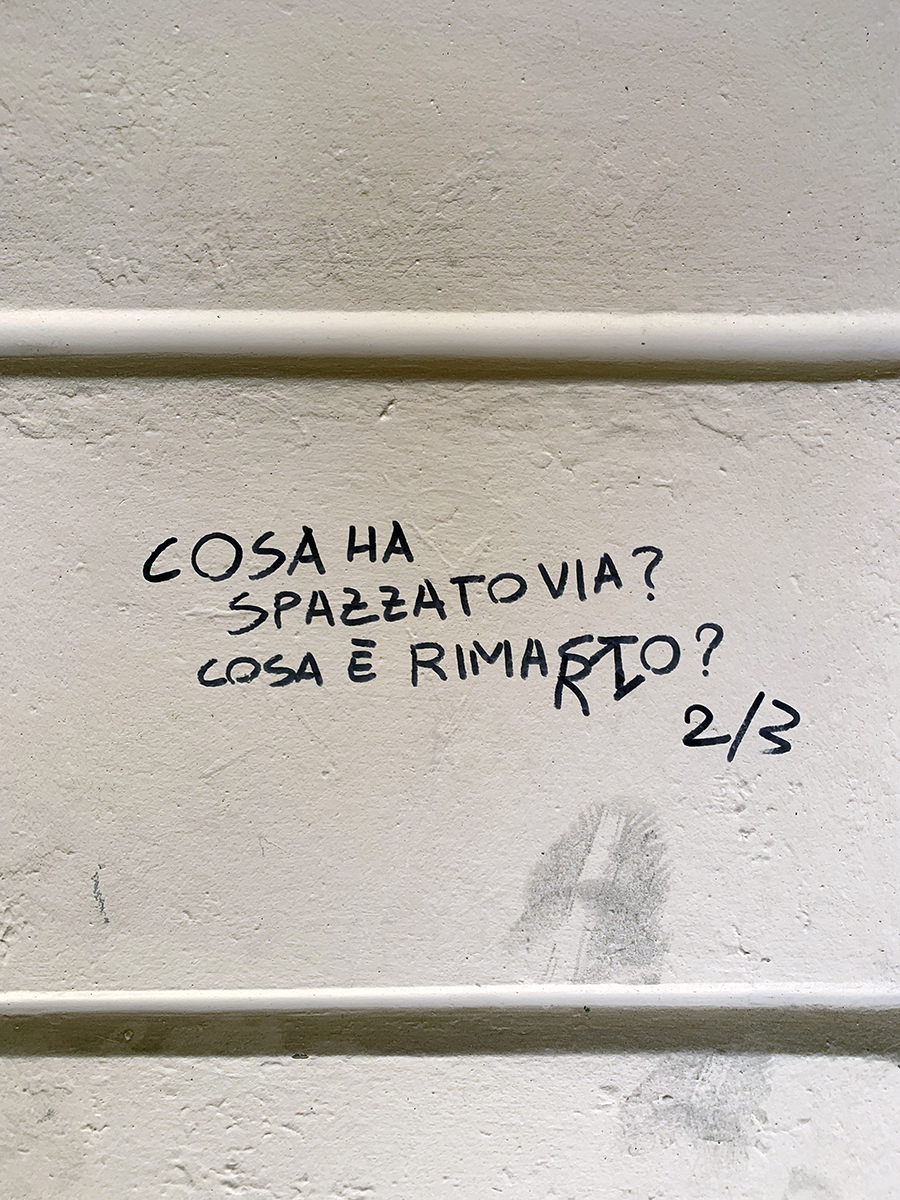 COSA HA
SPAZZATO VIA?
COSA È RIMASTO?
2/3